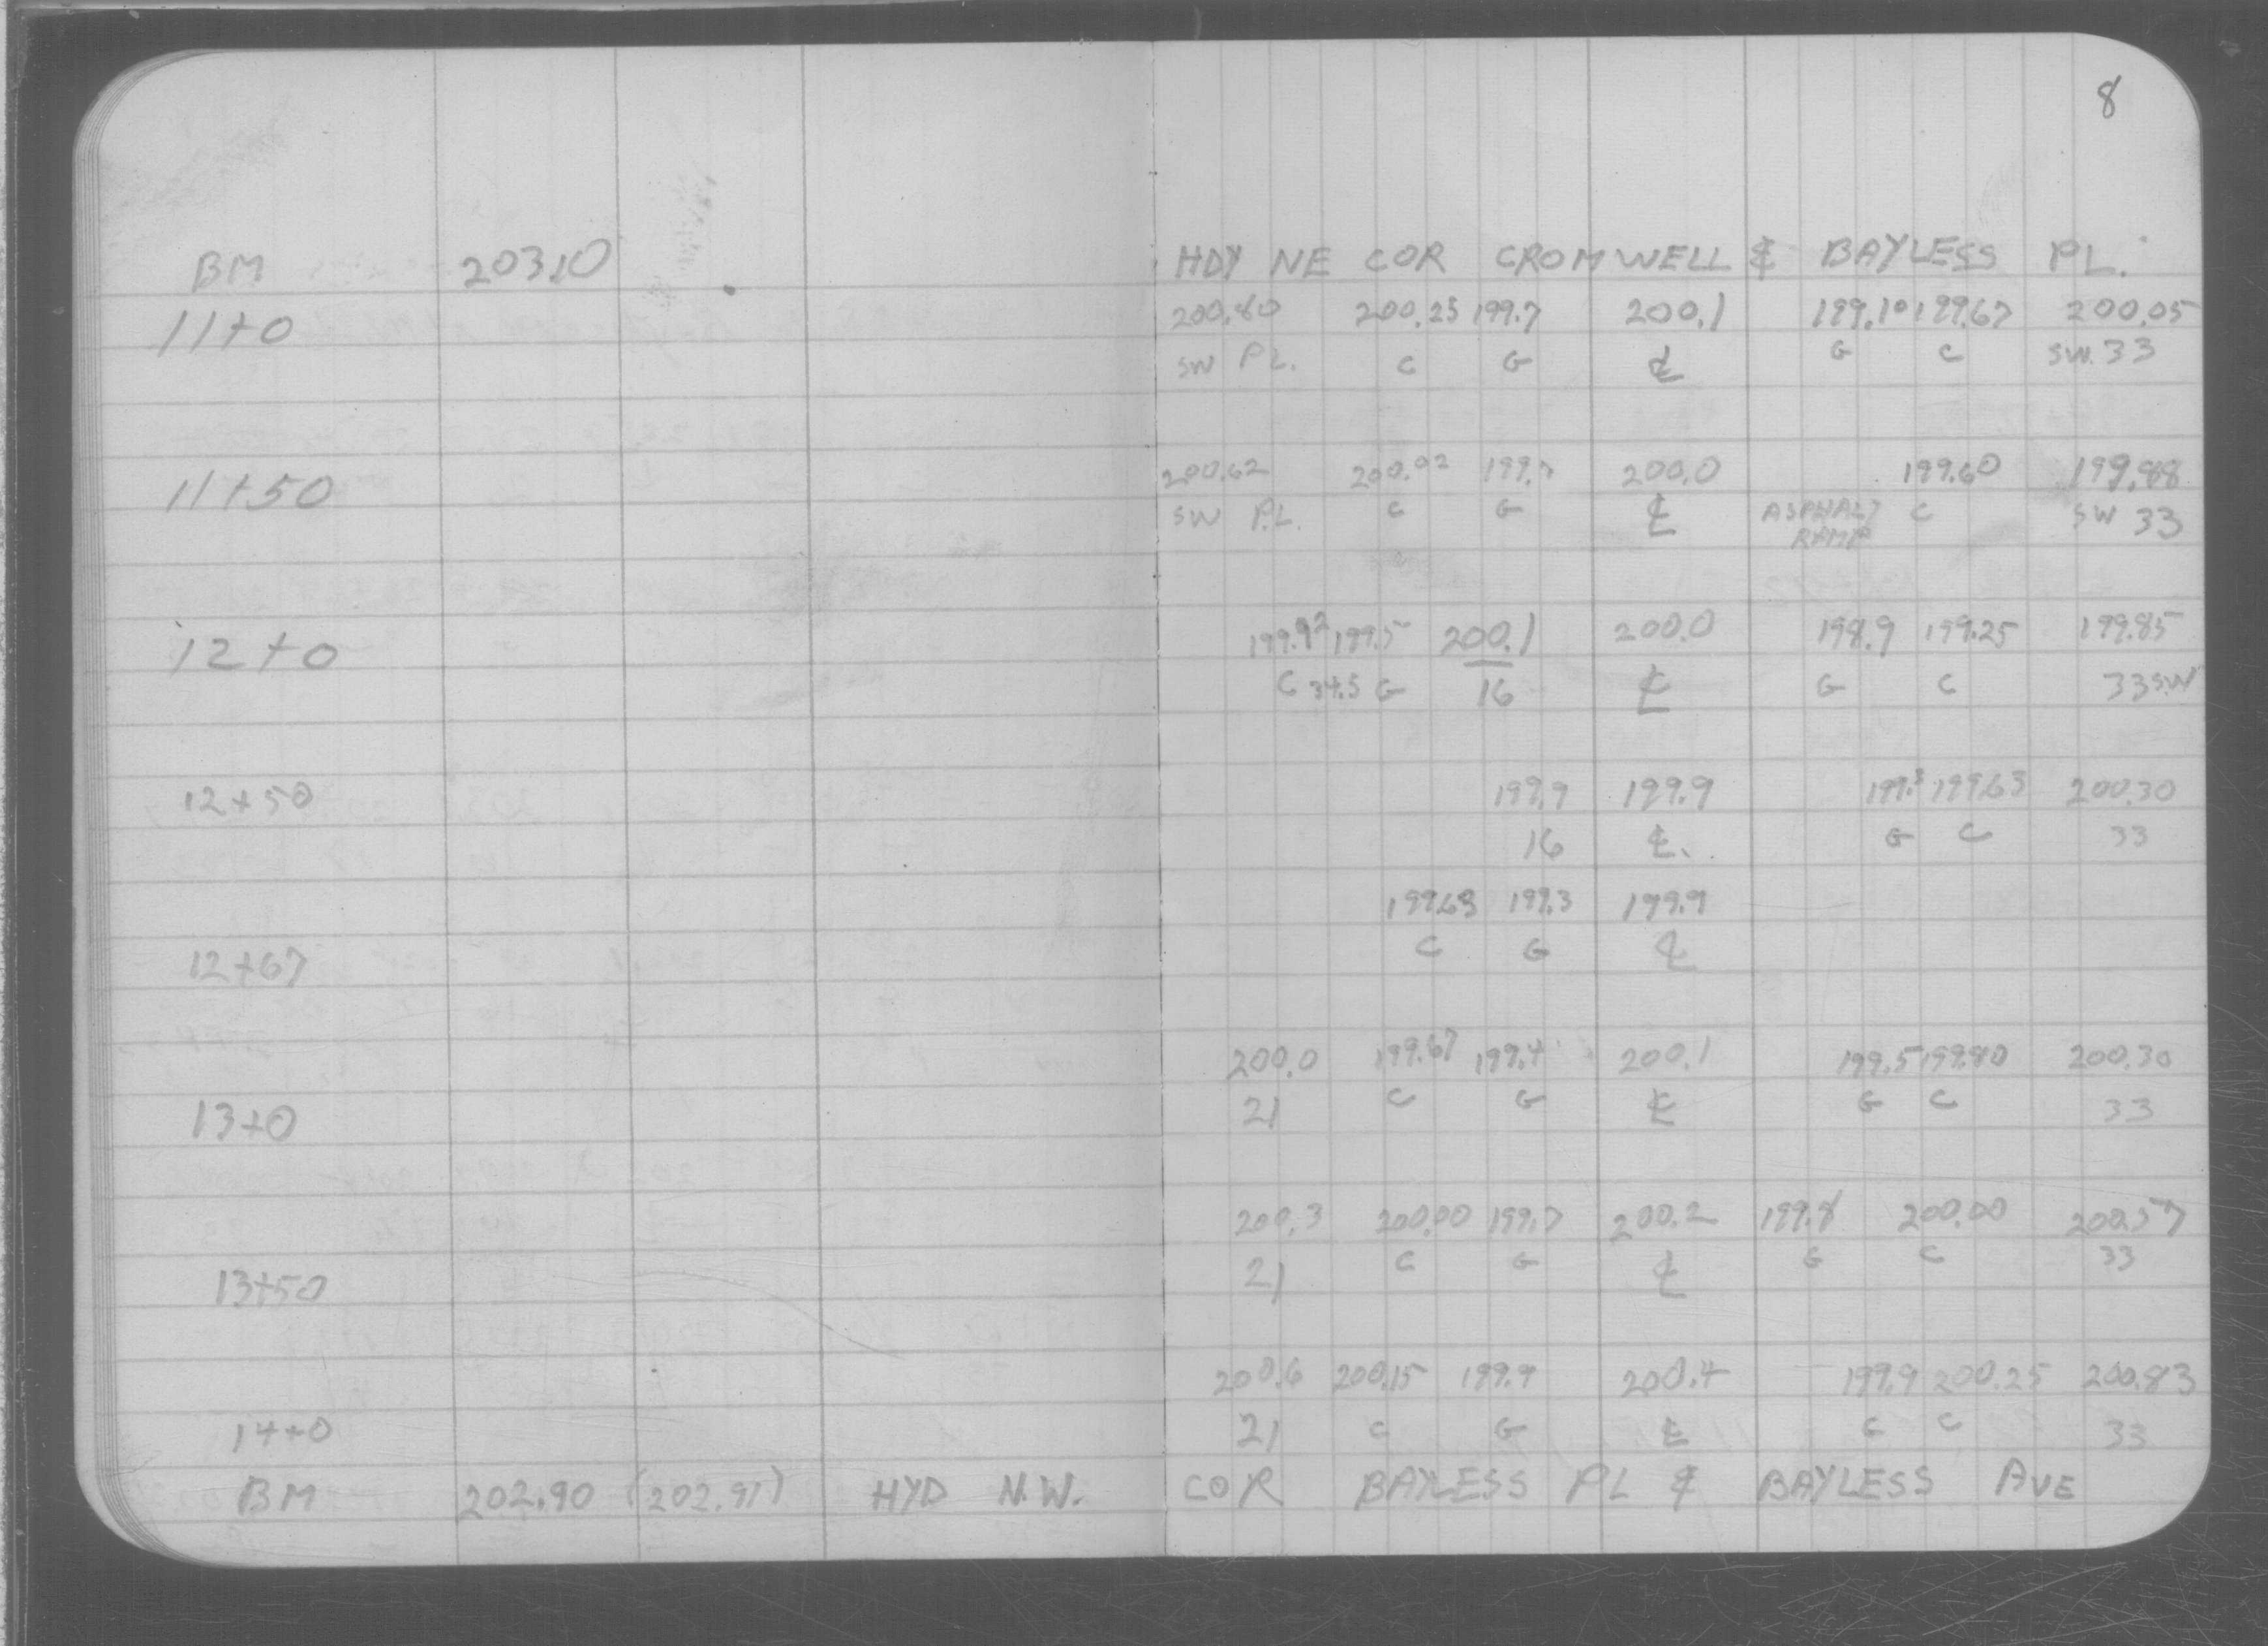 8
BM 203.10 HDY NE COR CROMWELL & BAYLESS PL.
200.80 200.25 199.7 200.1 199.10 199.67 200.05
11+0 SW PL. C G ℄ G C SW. 33
200.62 200.02 199.7 200.0 199.60 199.88
11+50 SW P.L. C G ℄ ASPHALT RAMP C SW 33
199.92 199.5 200.1 200.0 198.9 199.25 199.85
12+0 C 34.5 G 16 ℄ G C 33 SW
12+50 199.9 199.9 199.3 199.63 200.30
16 ℄ G C 33
199.63 199.3 199.9
12+67 C G ℄
200.0 199.67 199.4 200.1 199.5 199.80 200.30
13+0 21 C G ℄ G C 33
200.3 200.00 199.7 200.2 199.8 200.00 200.57
13+50 21 C G ℄ G C 33
200.6 200.15 199.9 200.4 199.9 200.25 200.83
14+0 21 C G ℄ C C 33
BM 202.90 (202.91) HYD N.W. COR BAYLESS PL & BAYLESS AVE